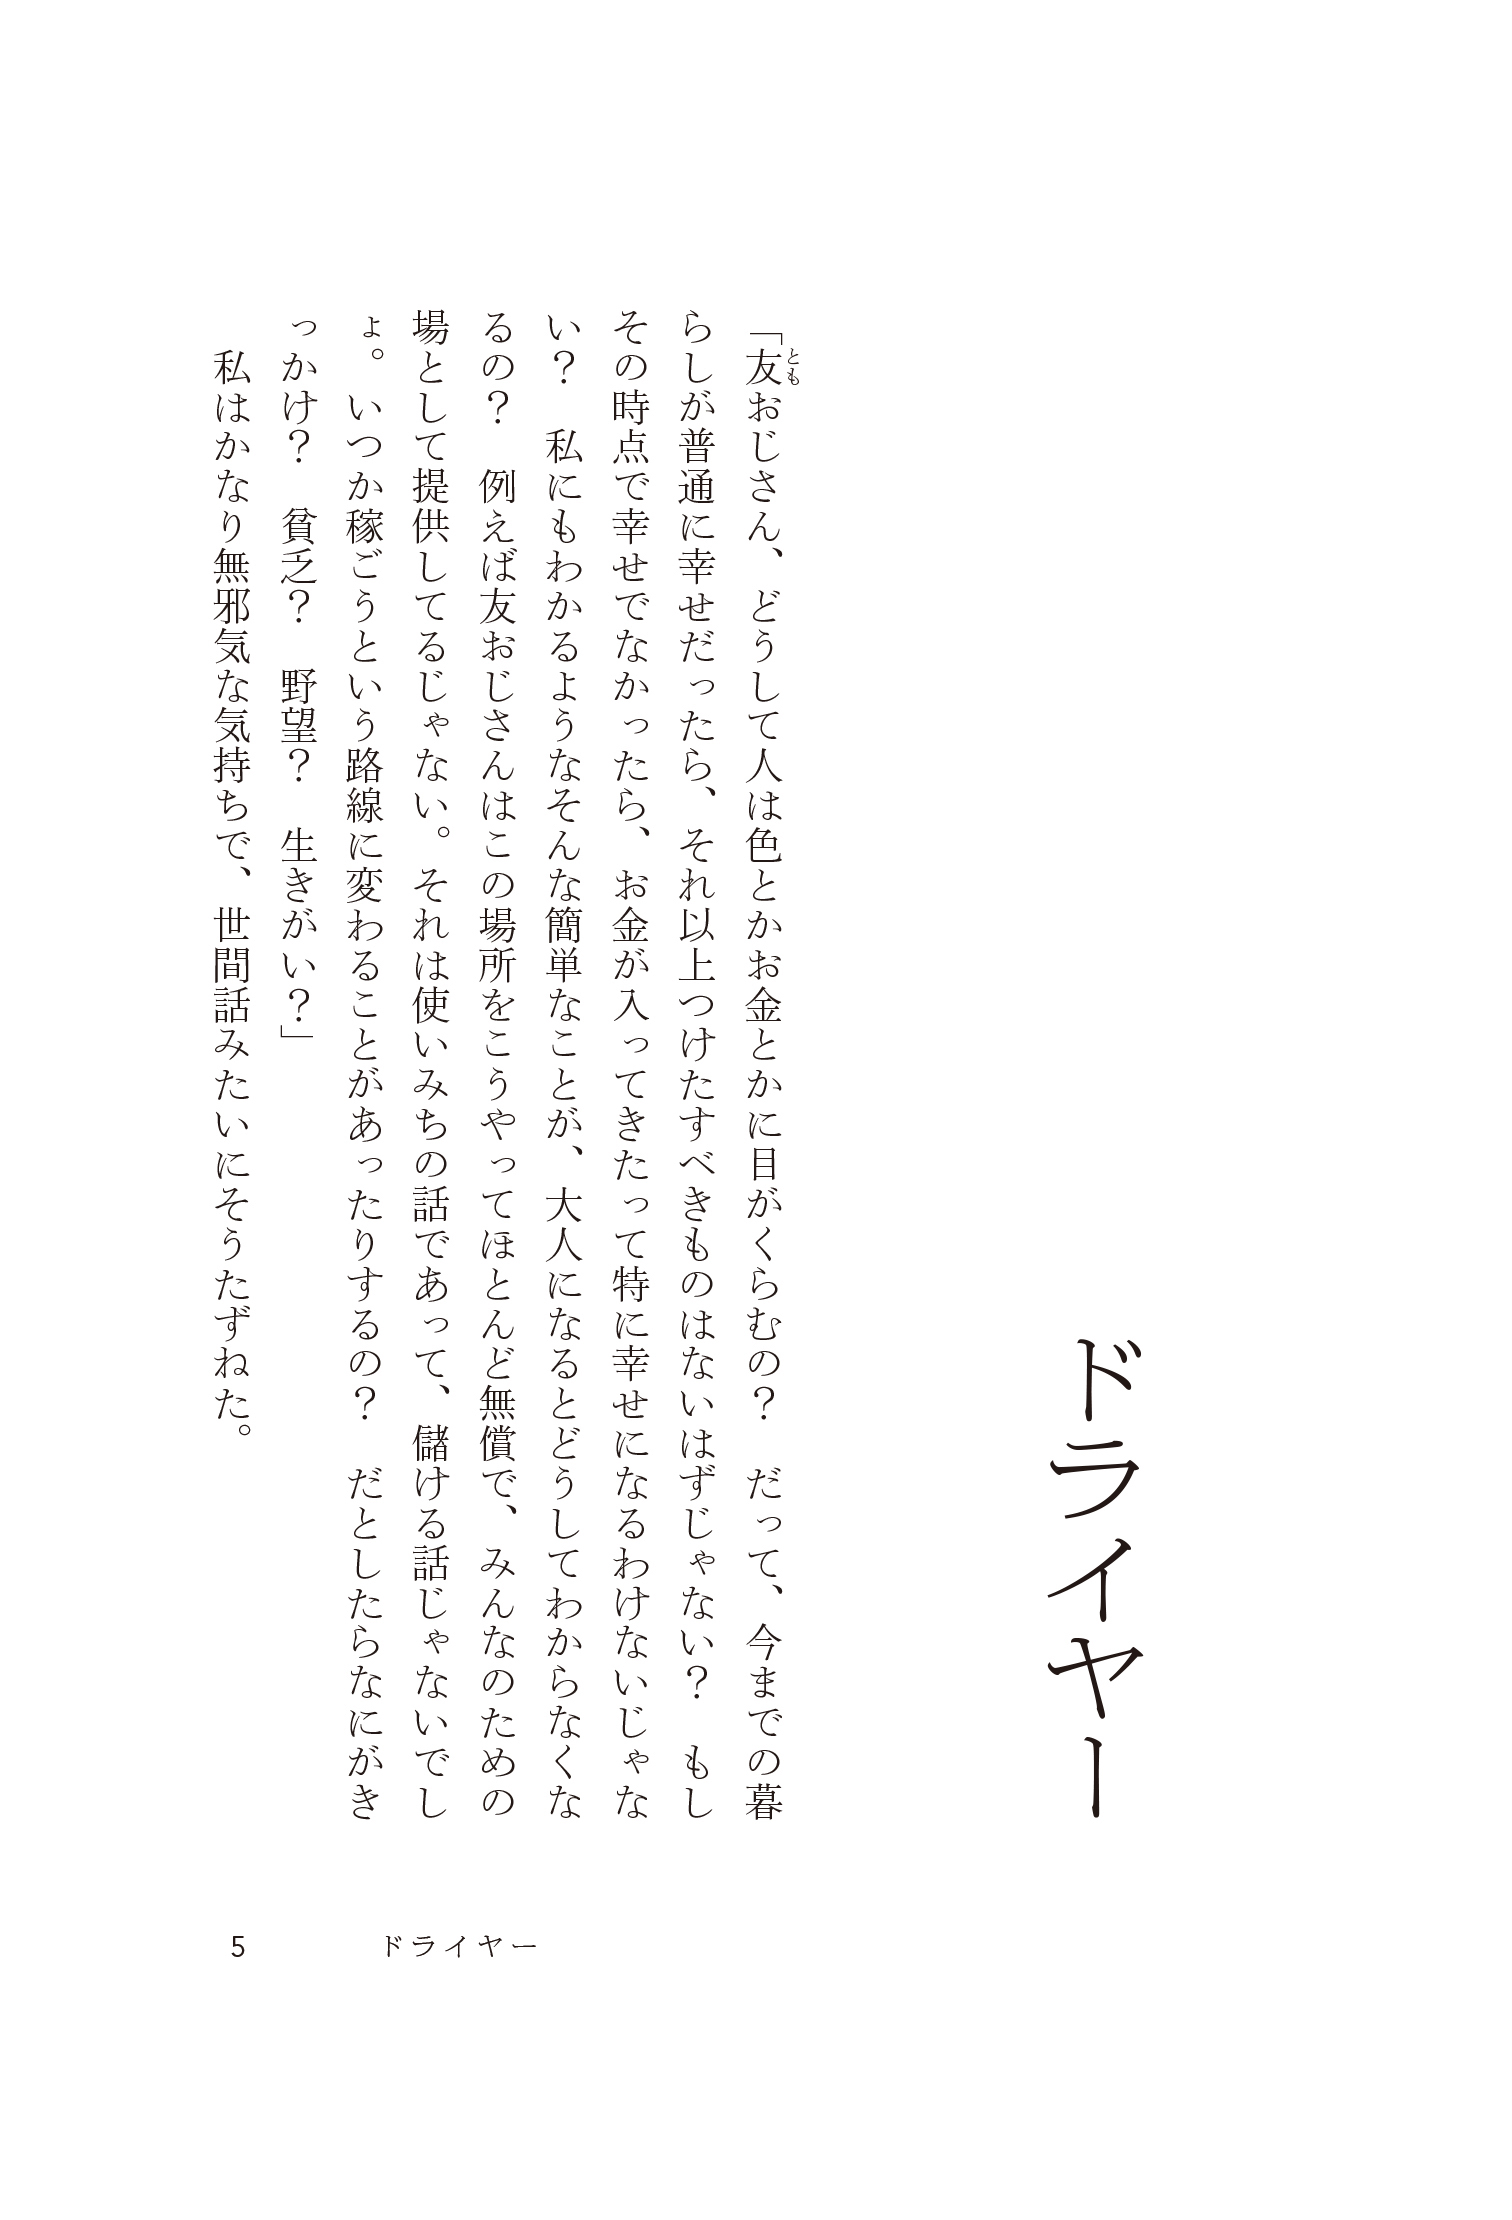 ドライヤー
「友おじさん、どうして人は色とかお金とかに目がくらむの？　だって、今までの暮
とも
らしが普通に幸せだったら、それ以上つけたすべきものはないはずじゃない？　もし
その時点で幸せでなかったら、お金が入ってきたって特に幸せになるわけないじゃな
い？　私にもわかるようなそんな簡単なことが、大人になるとどうしてわからなくな
るの？　例えば友おじさんはこの場所をこうやってほとんど無償で、みんなのための
場として提供してるじゃない。それは使いみちの話であって、儲ける話じゃないでし
ょ。いつか稼ごうという路線に変わることがあったりするの？　だとしたらなにがき
っかけ？　貧乏？　野望？　生きがい？」
　私はかなり無邪気な気持ちで、世間話みたいにそうたずねた。
5　ドライヤー